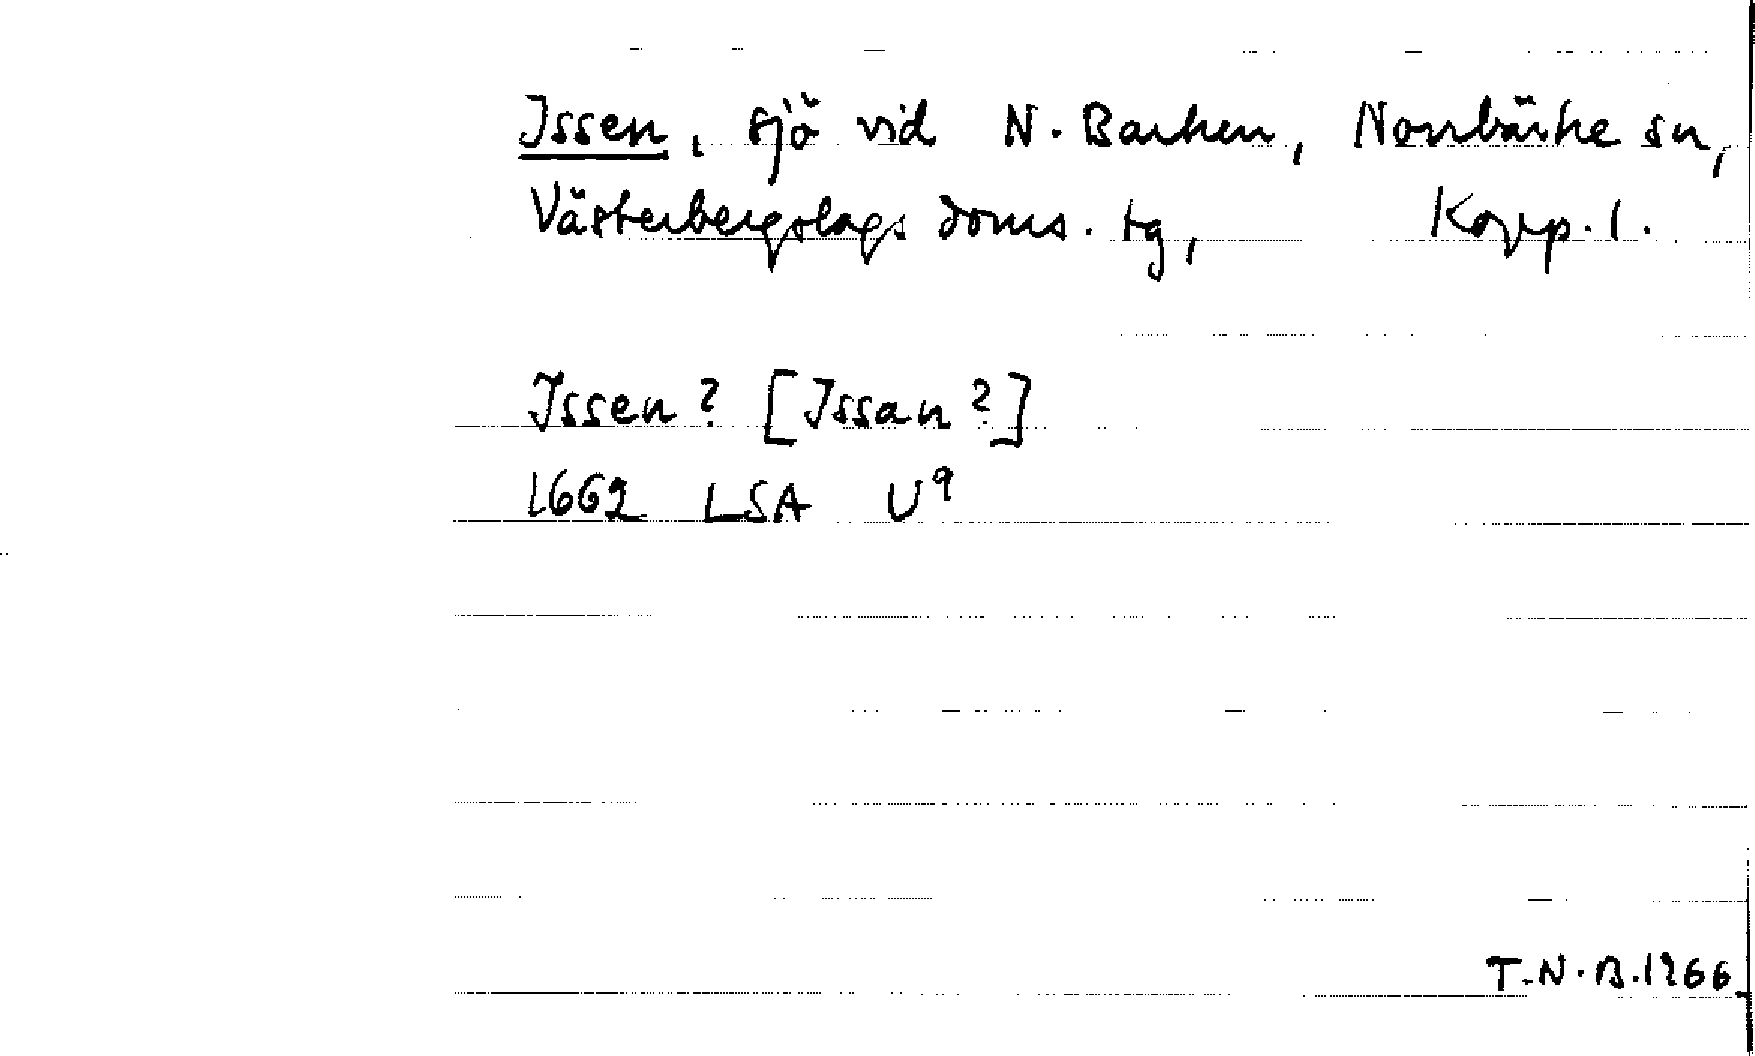 Issen, sjö vid N. Barken, Norrbärke sn,
Västerbergslags doms. tg, Kopp. l.
Issen? [Issan?]
1662 LSA U9
T.N.B. 1966